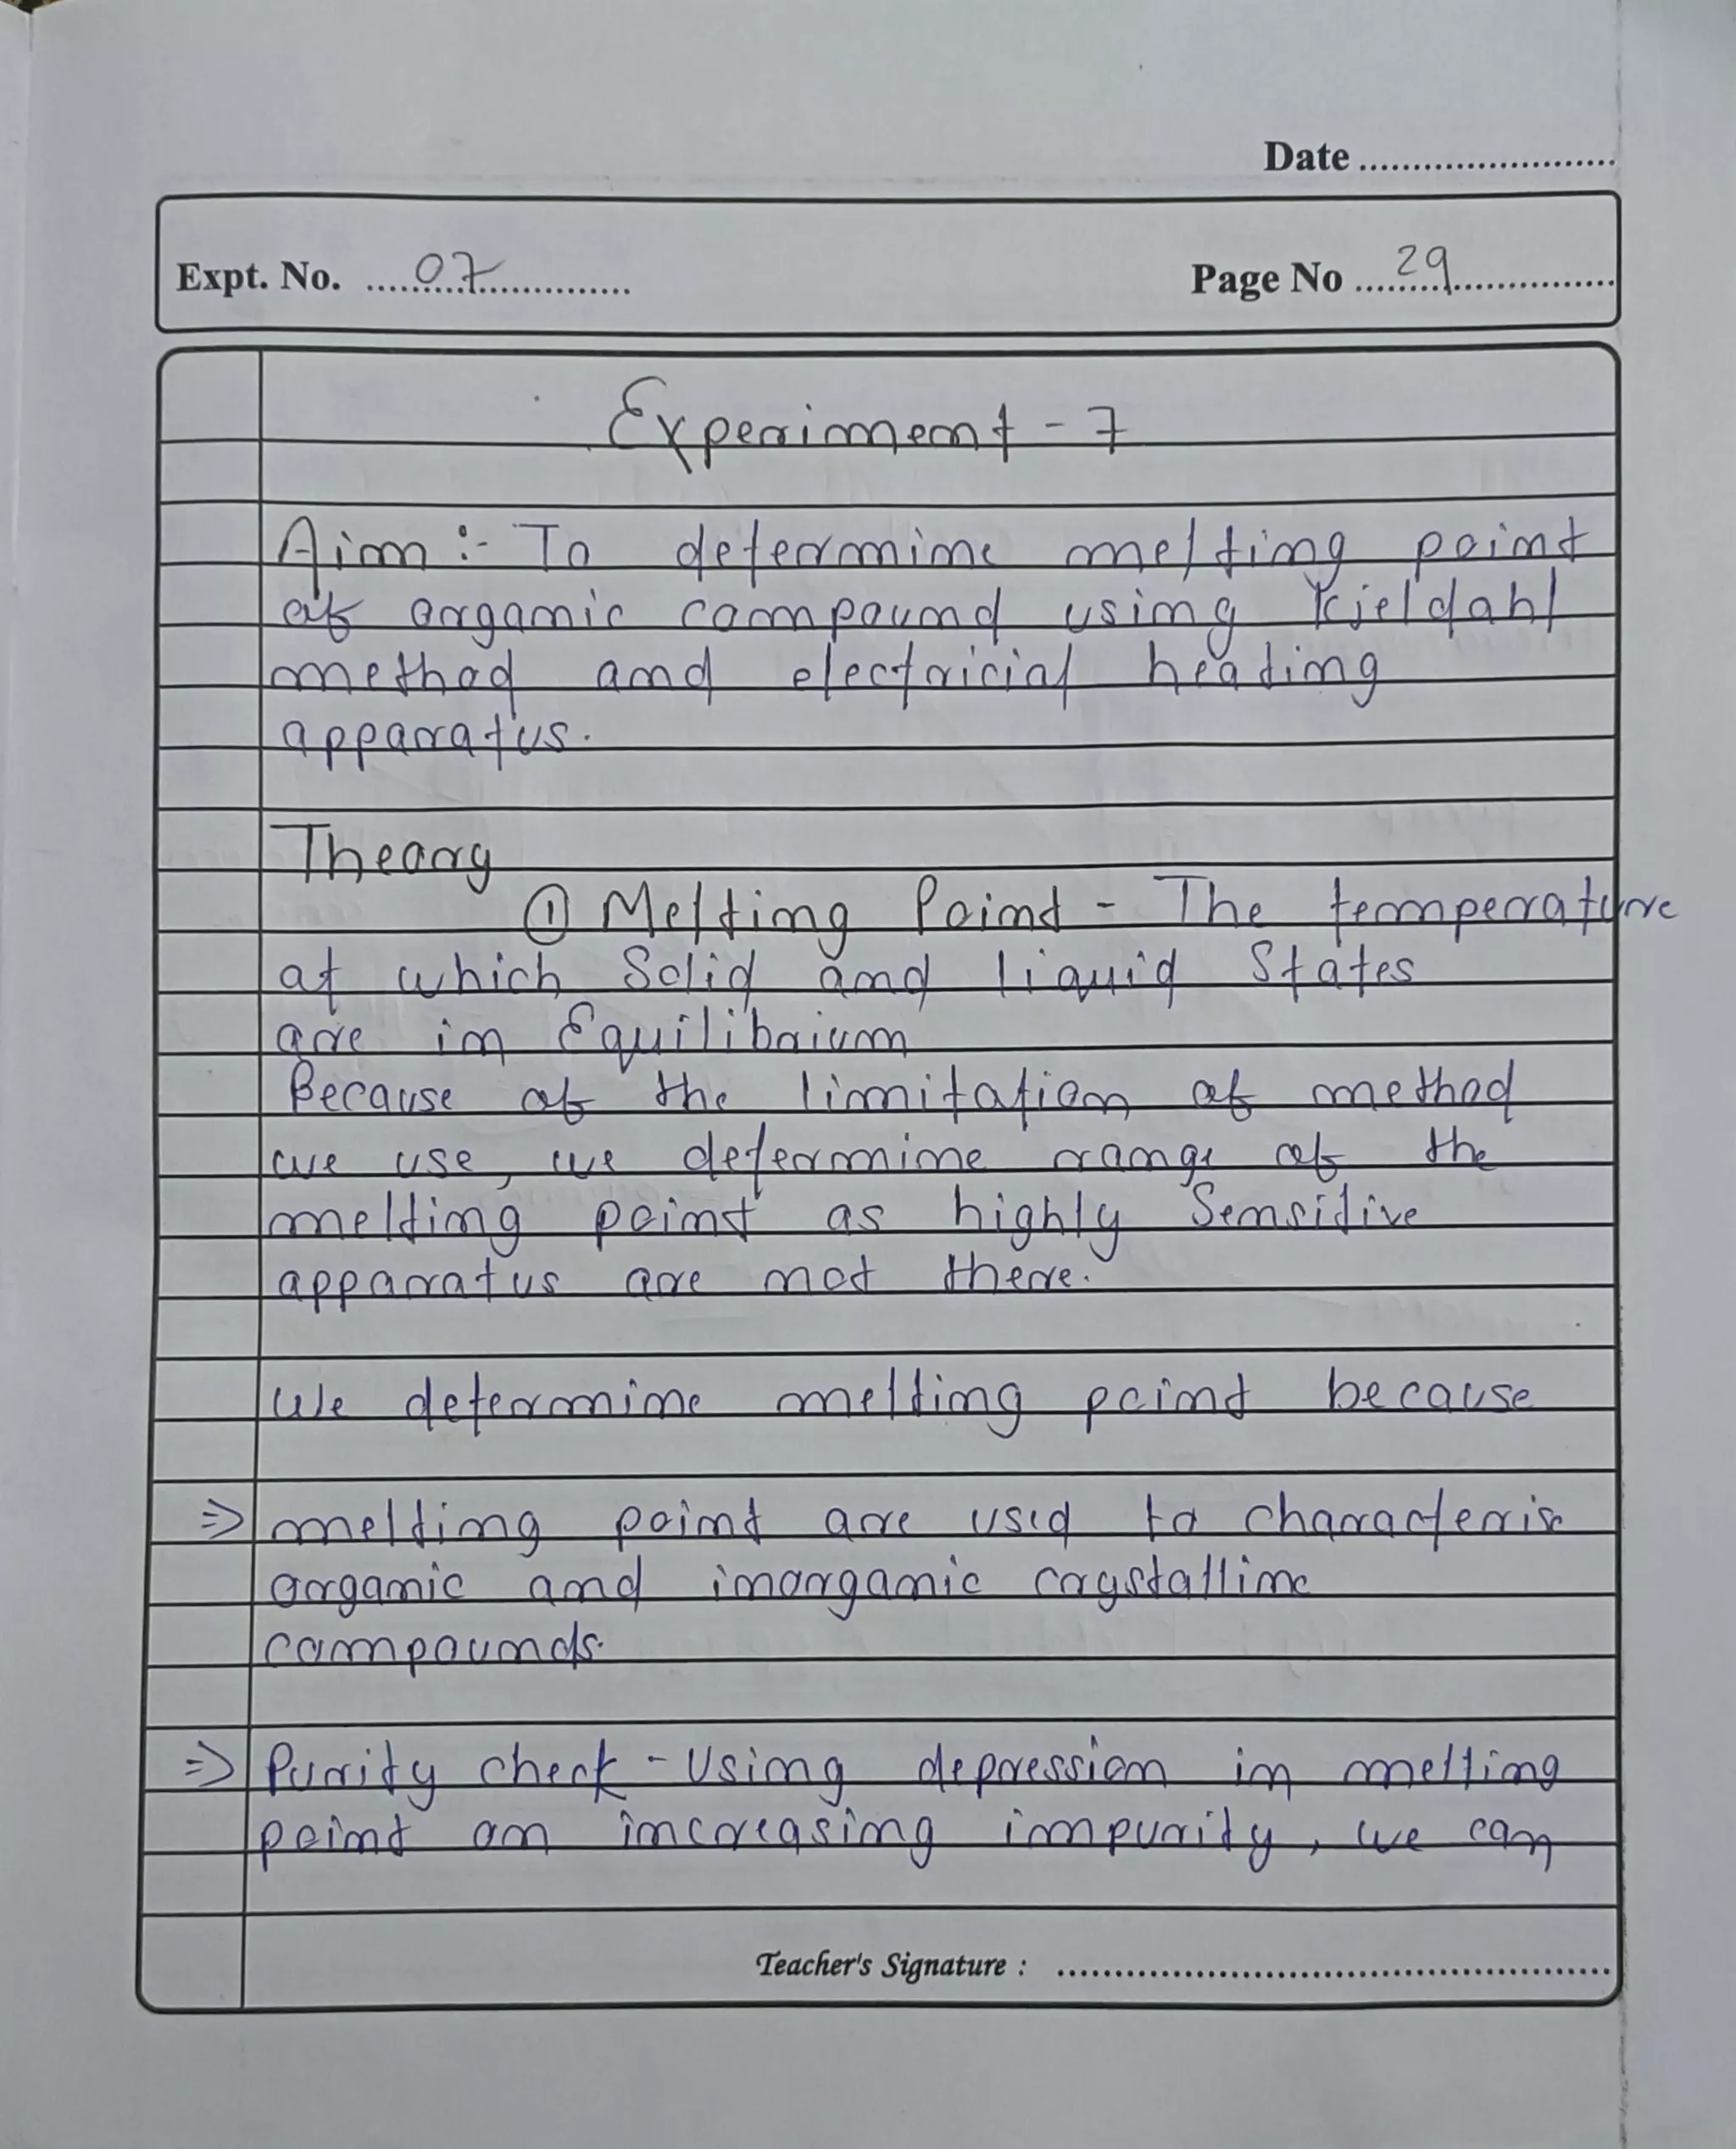 Date ........................
Expt. No. ....07............ Page No ....29............
Experiment - 7
Aim :- To determine melting point
of organic compound using Kjeldahl
method and electricial heating
apparatus.
Theory
① Melting Point - The temperature
at which Solid and liquid States
are in Equilibrium
Because of the limitation of method
we use, we determine range of the
melting point as highly Sensitive
apparatus are not there.
We determine melting point because
⇒ melting point are used to characteris
organic and inorganic crystalline
compounds.
⇒ Purity check - Using depression in melting
point on increasing impurity, we can
Teacher's Signature : ................................................